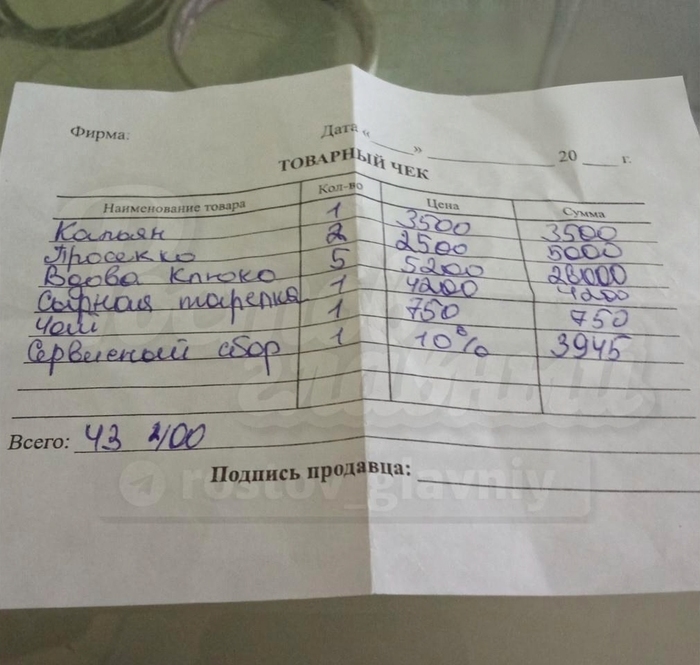 Фирма: Дата « » 20 г.
ТОВАРНЫЙ ЧЕК
Наименование товара Кол-во Цена Сумма
Кальян 1 3500 3500
Просекко 2 2500 5000
Вдова Клико 5 5200 26000
Сырная тарелка 1 4200 4200
Чай 1 750 750
Сервисный сбор 1 10% 3945
Всего: 43 400
Подпись продавца:
Ростов главный
rostov_glavniy